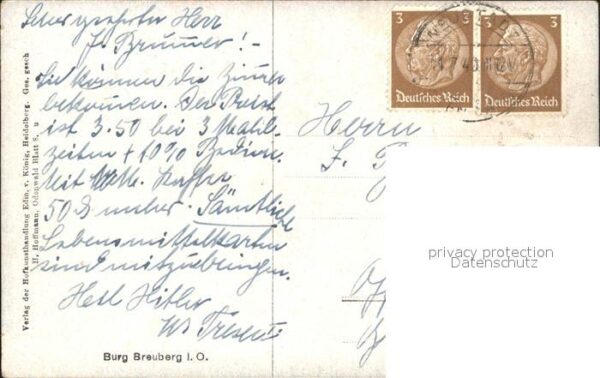 Sehr geehrter Herr
J. Brunner! –
Sie können die Zimmer
bekommen. Der Preis
ist 3.50 bei 3 Mahl-
zeiten + 10% Bedien.
Mit Kaffee
50 mehr. Sämtliche
Lebensmittelkarten
sind mitzubringen.
Heil Hitler
Burg Breuberg i. O.
Verlag der Hofkunsthandlung Edm. v. König, Heidelberg. Ges. gesch
H. Hoffmann, Odenwald Blatt 8. u
3
3
Deutsches Reich
Deutsches Reich
Herrn
privacy protection
Datenschutz